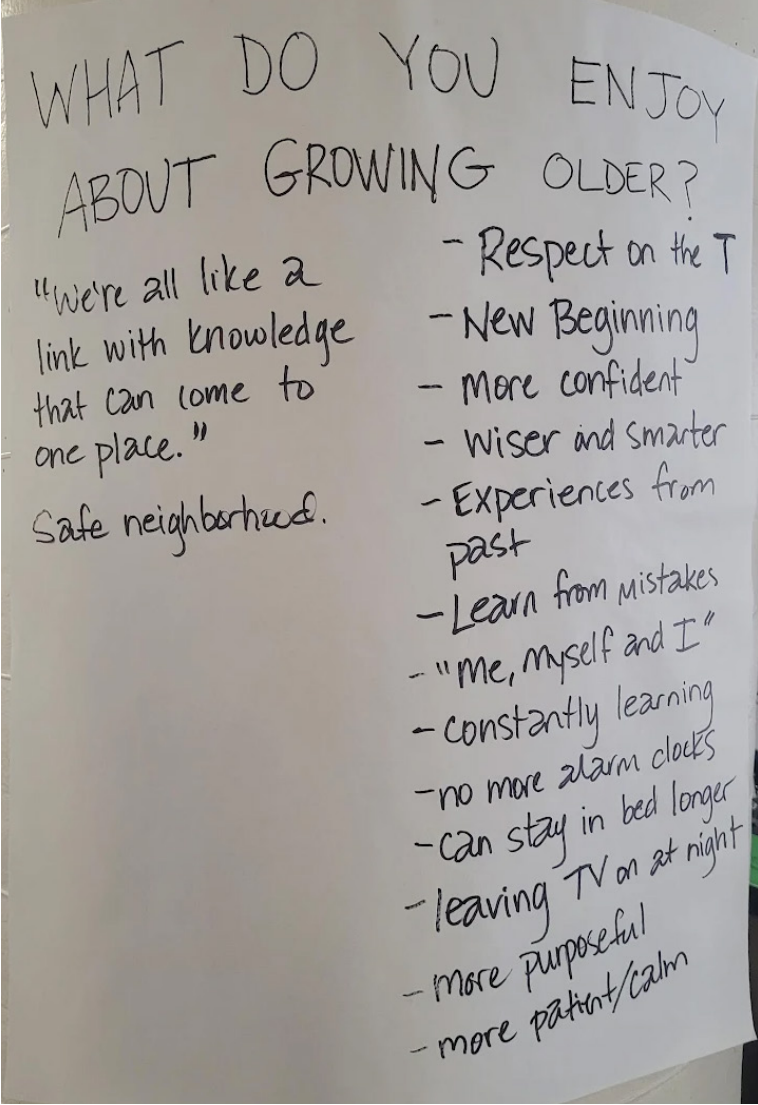 WHAT DO YOU ENJOY
ABOUT GROWING OLDER?
"We're all like a
link with knowledge
that can come to
one place."
Safe neighborhood.
- Respect on the T
- New Beginning
- more confident
- wiser and smarter
- Experiences from
past
- Learn from mistakes
- "Me, myself and I"
- constantly learning
- no more alarm clocks
- can stay in bed longer
- leaving TV on at night
- more purposeful
- more patient/calm